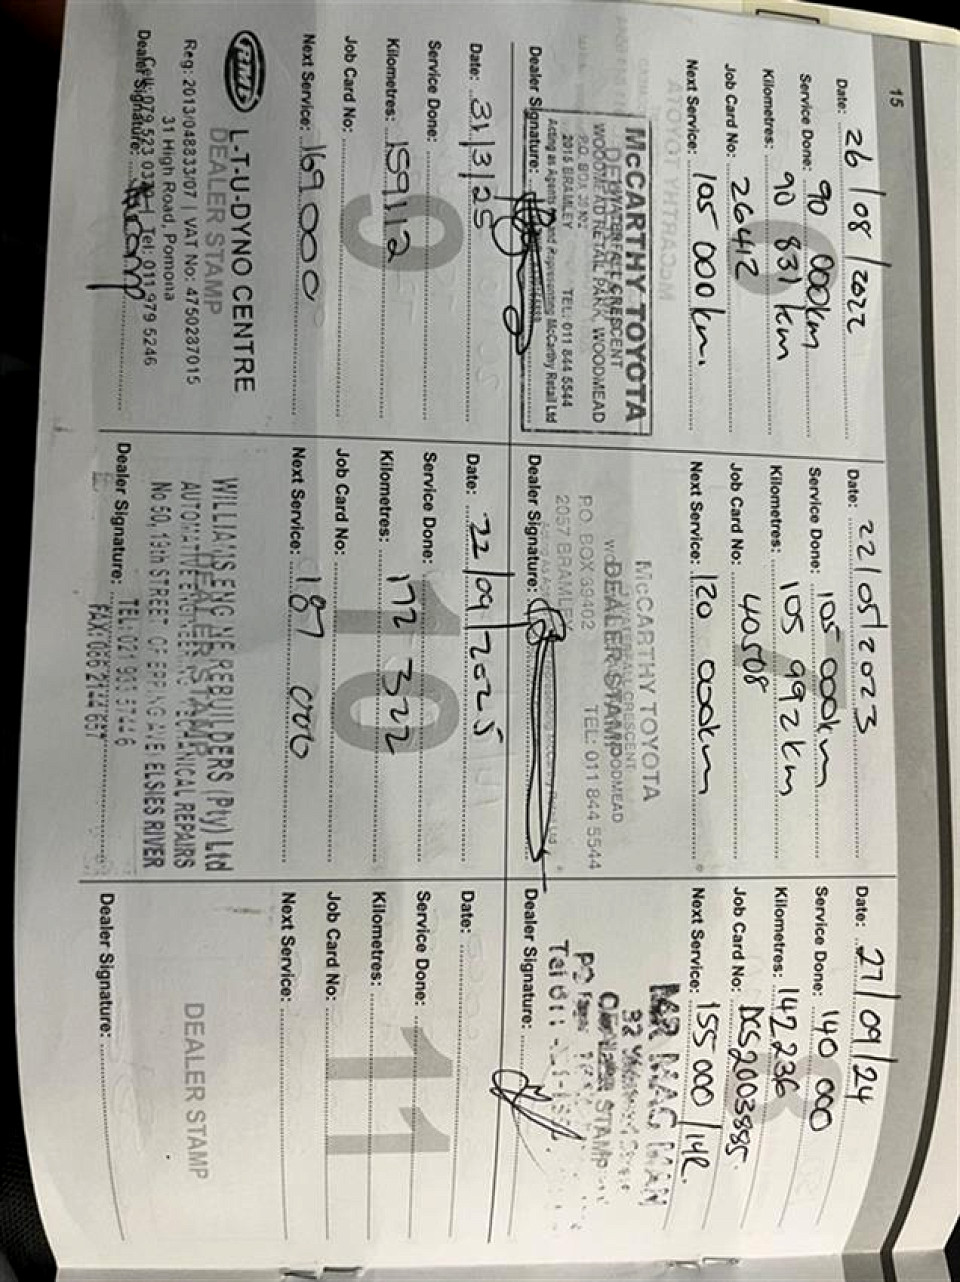 15
Date: 26/08/2022
Service Done: 90 000km
Kilometres: 90 831 km
Job Card No: 26412
Next Service: 105 000km.
McCARTHY TOYOTA
WOODMEAD RETAIL PARK, WOODMEAD
P.O. BOX
2015 BRAMLEY TEL: 011 844 5544
Acting as Agents and Representing McCarthy Retail Ltd
Dealer Signature:
Date: 22/05/2023
Service Done: 105 000km
Kilometres: 105 992km
Job Card No: 40508
Next Service: 120 000km
McCARTHY TOYOTA
DEALER STAMP
P.O. BOX 39402
2057 BRAMLEY TEL: 011 844 5544
Dealer Signature:
Date: 27/09/24
Service Done: 140 000
Kilometres: 142 236
Job Card No: DCS2003885.
Next Service: 155 000/1YR.
MAG MAN
STAMP
Dealer Signature:
9
Date: 31/3/25
Service Done:
Kilometres: 159112
Job Card No:
Next Service: 169000
RMI
L-T-U-DYNO CENTRE
DEALER STAMP
Reg: 2013/048833/07 | VAT No: 4750237015
31 High Road, Pomona
Tel: 011 979 5246
Dealer Signature:
10
Date: 22/09/2025
Service Done:
Kilometres: 172 322
Job Card No:
Next Service: 187 000
WILLIANS ENGINE REBUILDERS (Pty) Ltd
DEALER STAMP
AUTOMATIVE ENGINEERS MECHANICAL REPAIRS
No 50, 19th STREET OF EPPING AVE ELSIES RIVER
TEL: 021 903 5744 6
FAX: 086 2144 657
Dealer Signature:
11
Date:
Service Done:
Kilometres:
Job Card No:
Next Service:
DEALER STAMP
Dealer Signature: